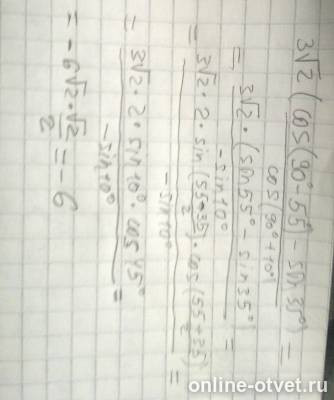 3√2 (cos(90°-55°) - sin 35°) / cos(90°+10°) =
= 3√2 · (sin 55° - sin 35°) / -sin 10° =
= 3√2 · 2 · sin (55-35)/2 · cos (55+35)/2 / -sin 10° =
= 3√2 · 2 · sin 10° · cos 45° / -sin 10° =
= -6√2 · √2/2 = -6
online-otvet.ru